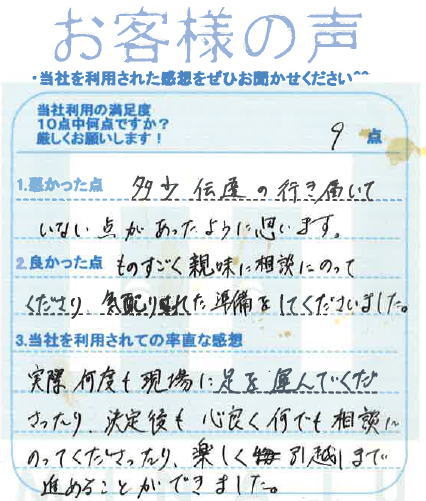 お客様の声
・当社を利用された感想をぜひお聞かせください^^
当社利用の満足度
10点中何点ですか?
厳しくお願いします!
9 点
1.悪かった点 多少伝達の行き届いて
いない点があったように思います。
2.良かった点 ものすごく親味に相談にのって
くださり、気配りされた準備をしてくださいました。
3.当社を利用されての率直な感想
実際何度も現場に足を運んでくだ
さったり、決定後も心良く何でも相談に
のってくださったり、楽しく 引越しまで
進めることができました。